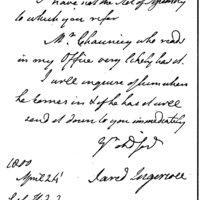 I have not the Act of
to which you refer
Mr. Chauncey who reads
in my Office very likely has it.
I will inquire of him when
he comes in & if he has it will
send it down to you immediately
Yr
1800
April 24
Jared Ingersoll